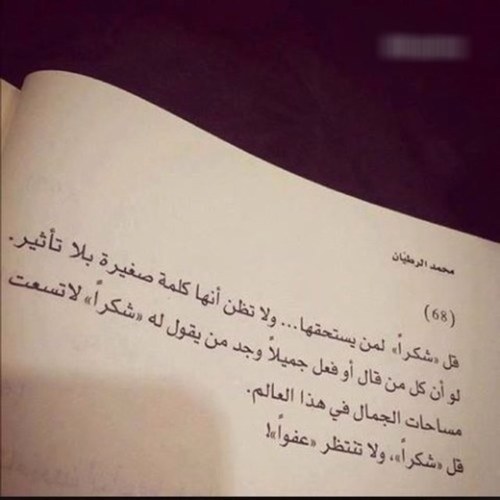 محمد الرطيان
(68)
قل «شكراً» لمن يستحقها... ولا تظن أنها كلمة صغيرة بلا تأثير.
لو أن كل من قال أو فعل جميلاً وجد من يقول له «شكراً» لاتسعت
مساحات الجمال في هذا العالم.
قل «شكراً»، ولا تنتظر «عفواً»!